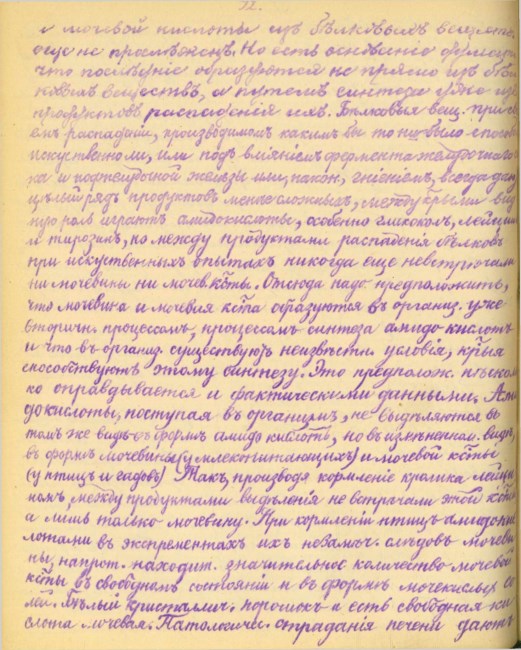 и мочевой кислоты изъ бѣлковыхъ веществъ
еще не прослѣжена. Но есть основаніе думать
что послѣдніе образуются не прямо изъ бѣл
ковыхъ веществъ, а путемъ синтеза уже изъ
продуктовъ распаденія ихъ. Бѣлковыя вещ. при сво
емъ распаденіи, производимомъ какимъ бы то ни было способ
искуственномъ, или подъ вліяніемъ фермента желудочнаго со
ка и поджелудочной железы или, након, гніеніемъ, всегда даютъ
цѣлый рядъ продуктовъ менѣе сложныхъ, между крыми вид
ную роль играютъ амидокислоты, особенно гликоколъ, лейцинъ
и тирозинъ, но между продуктами распаденія бѣлковъ
при искуственныхъ опытахъ никогда еще невстрѣчали
ни мочевины ни мочев. кѣты. Отсюда надо предположить,
что мочевина и мочевая кѣта образуются въ организ. уже
вторичн. процессомъ, процессомъ синтеза амидо-кислотъ
и что въ организ. существуютъ неизвѣстн. условія, крыя
способствуютъ этому синтезу. Это предполож. нѣсколь
ко оправдывается и фактическими данными. Ами
докислоты, поступая въ организмъ, не выдѣляются въ
томъ же видѣ въ формѣ амидо кислотъ, но въ измѣненномъ видѣ,
въ формѣ мочевины (у млекопитающихъ) и мочевой кѣты
(у птицъ и гадовъ) Такъ, производя кормленіе кролика лейци
номъ, между продуктами выдѣленія не встрѣчали этой кѣты
а лишь только мочевину. При кормленіи птицъ амидокис
лотами въ экскрементахъ ихъ незамѣч. слѣдовъ мочеви
ны, напрот. находим. значительное количество мочевой
кѣты въ свободномъ состояніи и въ формѣ мочекислыхъ со
лей. Бѣлый кристалич. порошокъ и есть свободная ки
слота мочевая. Патологич. страданія печени даютъ